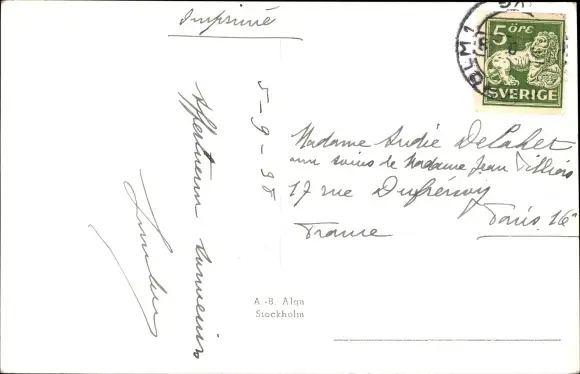 Imprimé
5-9-38
Affectueux souvenirs
5 ÖRE
SVERIGE
OLM 1
Madame André Delahet
aux soins de Madame Jean Villiers
17 rue Dufrénoy
Paris 16e
France
A.-B. Alga
Stockholm